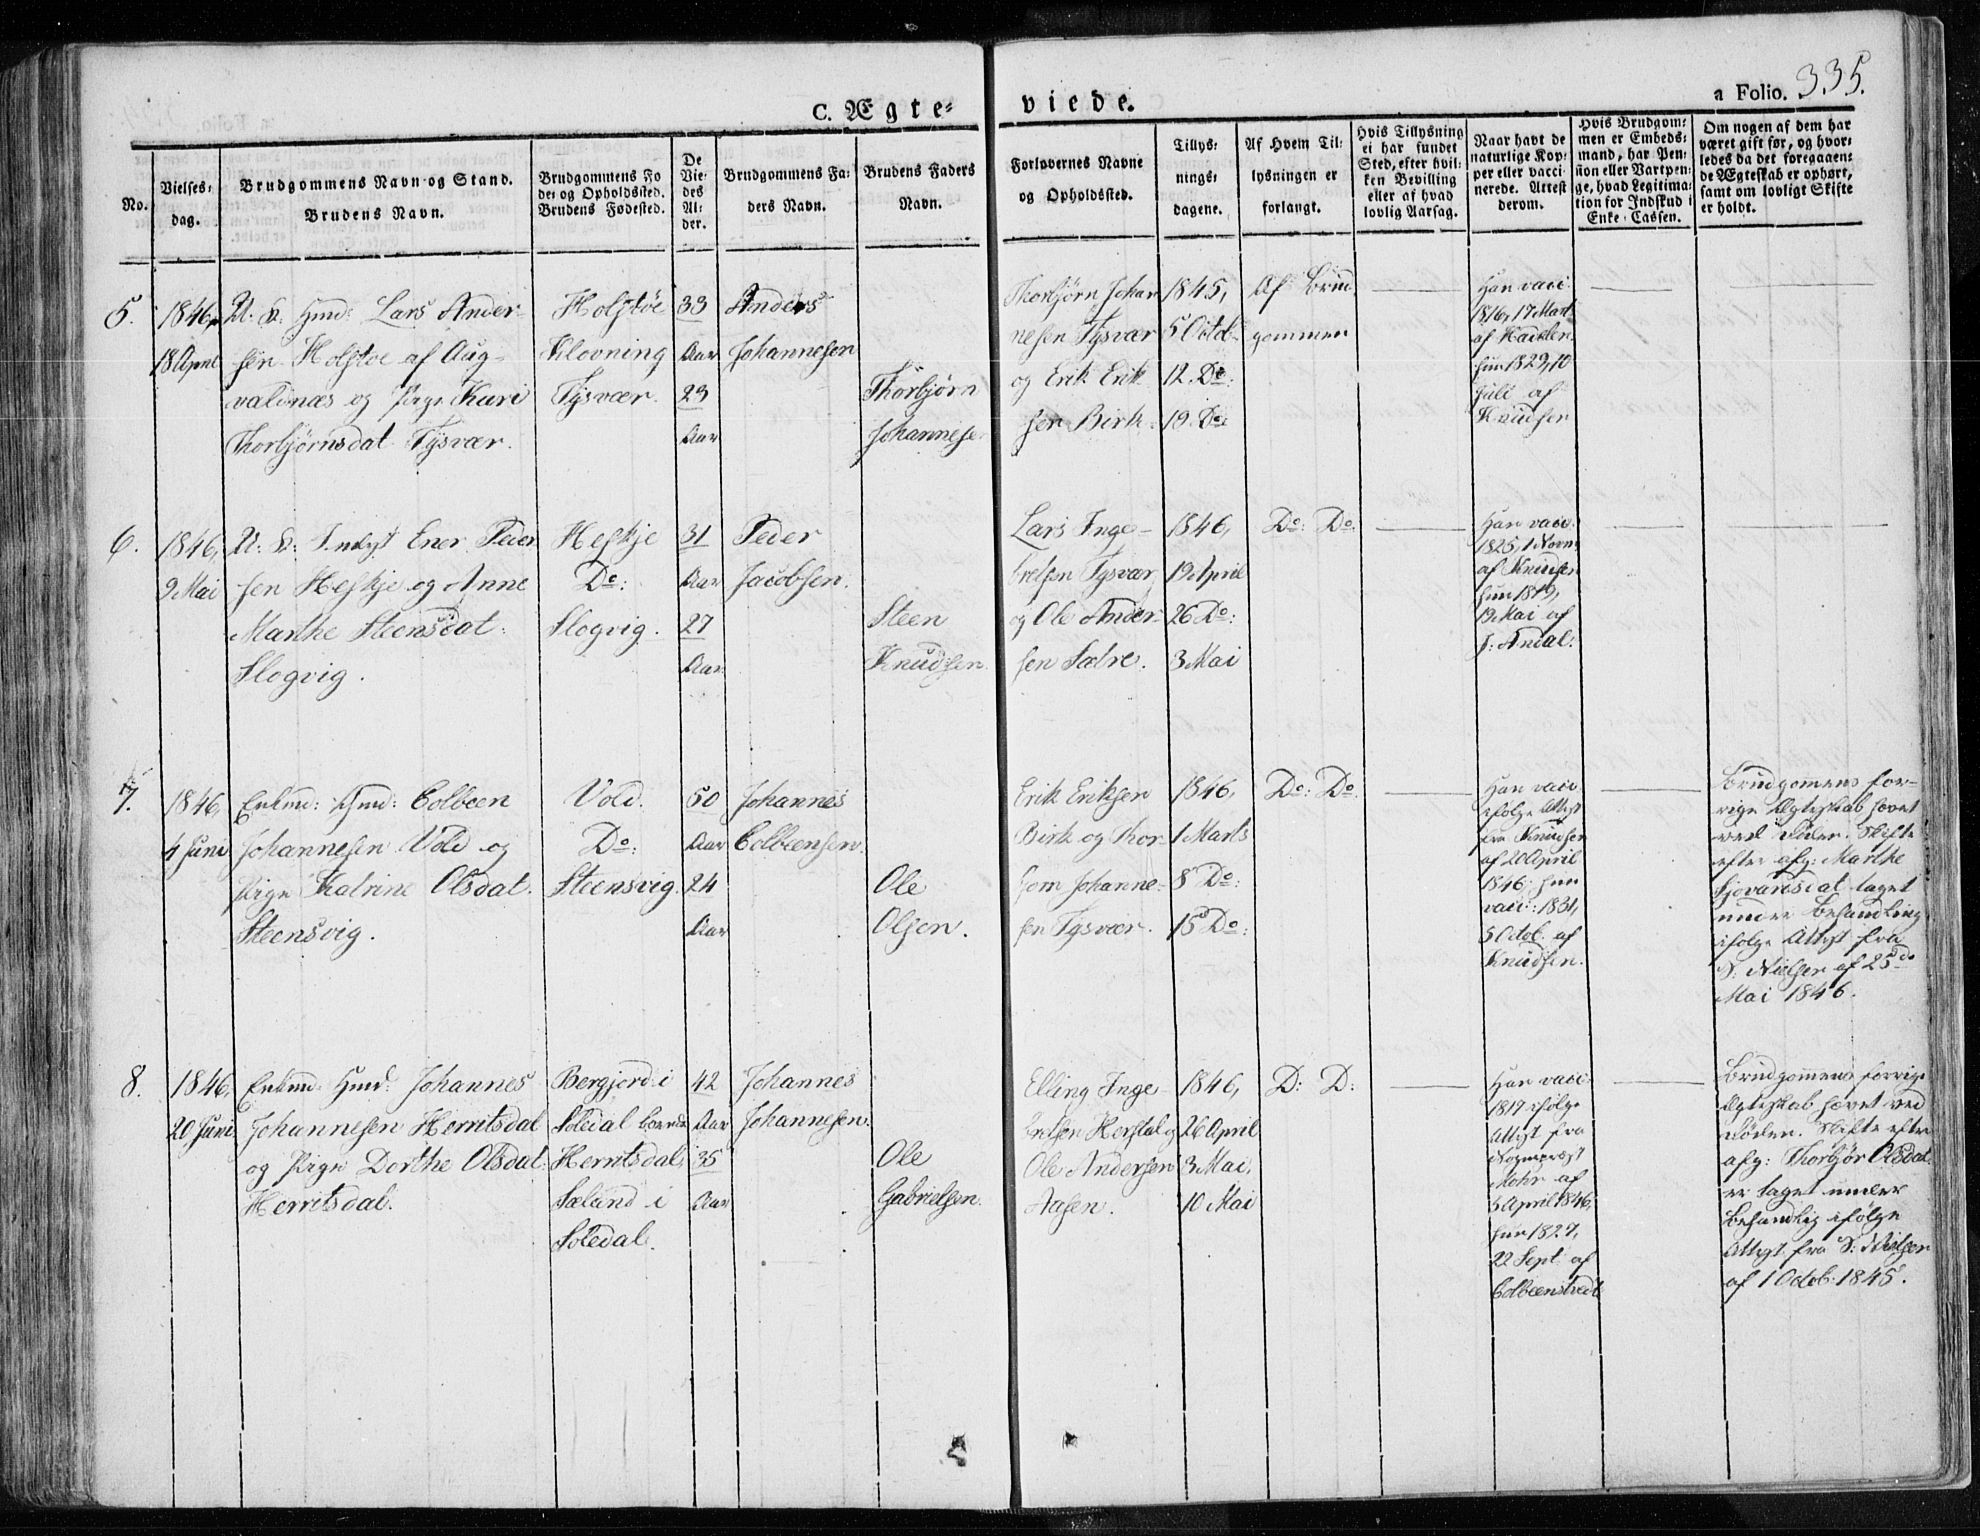 C. Ægte-
viede.
a Folio. 335.
No.
Vielses-
dag.
Brudgommens Navn og Stand.
Brudens Navn.
Brudgommens Fø
de- og Opholdssted.
Brudens Fødested.
De
Vie-
des
Al-
der.
Brudgommens Fa-
ders Navn.
Brudens Faders
Navn.
Forlovernes Navne
og Opholdssted.
Tillys-
nings-
dagene.
Af Hvem Til-
lysningen er
forlangt.
Hvis Tillysning
ei har fundet
Sted, efter hvil-
ken Bevilling
eller af hvad
lovlig Aarsag.
Naar havt de
naturlige Kop-
per eller vacci-
nerede. Attest
derom.
Hvis Brudgom-
men er Embeds-
mand, har Pen-
sion eller Vartpen-
ge, hvad Legitima-
tion for Indskud i
Enke-Cassen.
Om nogen af dem har
været gift før, og hvor-
ledes da det foregaaen-
de Ægteskab er ophørt,
samt om lovligt Skifte
er holdt.
5.
1846,
18 April
U. K. Gmd: Lars Ander-
sen Holstøe af Aug-
valdnæs og Pige Kari
Thorbjørnsdat Tysvær.
Holstøe
Klovning
Tysvær.
33
Aar
23
Aar
Anders
Johannesen
Thorbjørn
Johannese
Thorbjørn Johan
nesen Tysvær
og Erik Erik
sen Birk.
1845,
5 Octob:
12. Do:
19. Do:
Af Brud
gommen
Han vacc:
1816, 17 Mart
af
hun 1829, 10
Juli af
Knudsen
6.
1846,
9 Mai
U: K: Indst Ener Peder
sen Heskje og Anne
Marthe Steensdat:
Slogvig.
Heskje
Do:
Slogvig.
31
Aar
27
Aar
Peder
Jacobsen.
Steen
Knudsen.
Lars Inge-
bretsen Tysvær
og Ole Ander-
sen Sætre.
1846,
19 April
26 Do:
3 Mai
Do: Do:
Han vacc:
1825, 1 Novm
af Knudsen
hun 1819,
19 Mai af
J: Andal.
7.
1846,
4 Juni
Enkmd: Gmd: Colbeen
Johannesen Vold og
Pige Katrine Olsdat.
Steensvig.
Vold.
Do:
Steensvig.
50
Aar
24
Aar
Johannes
Colbeensen.
Ole
Olsen.
Erik Eriksen
Birk og Thor-
Johanne-
sen Tysvær.
1846,
1 Marts
8 Do:
15 Do:
Do: Do:
Han vacc:
ifølge Attest
fra Knudsen
af 20 April
1846, hun
vacc: 1831,
5 Octob. af
Knudsen.
Brudgommens for-
rige Ægteskab hævet
ved Døden. Skifte
efter afg: Marthe
Sjovardsdat taget
under Behandling
ifølge Attest fra
S: Nielsen af 25de
Mai 1846.
8.
1846,
20 Juni
Enkmd: Gmd: Johannes
Johannesen Herritsdal
og Pige Dorthe Olsdat:
Herritsdal.
Bergjord i
Soledal boende
Herritsdal,
Sæland i
Soledal.
42
Aar
35
Aar
Johannes
Johannesen.
Ole
Gabrielsen.
Elling Inge-
bretsen Herstal og
Ole Andersen
Aasen.
1846,
26 April
3 Mai,
10 Mai
D: D:
Han vacc:
1817 ifølge
Attest fra
Sognepræst
Mohr af
5 April 1846,
hun 1827,
22 Sept af
Colbeenstvedt
Brudgommens forrige
Ægteskab hævet ved
Døden. Skifte efter
afg: Thorbjør Olsdat.
er taget under
Behandlig ifølge
Attest fra S: Nielsen
af 1 Octob: 1845.